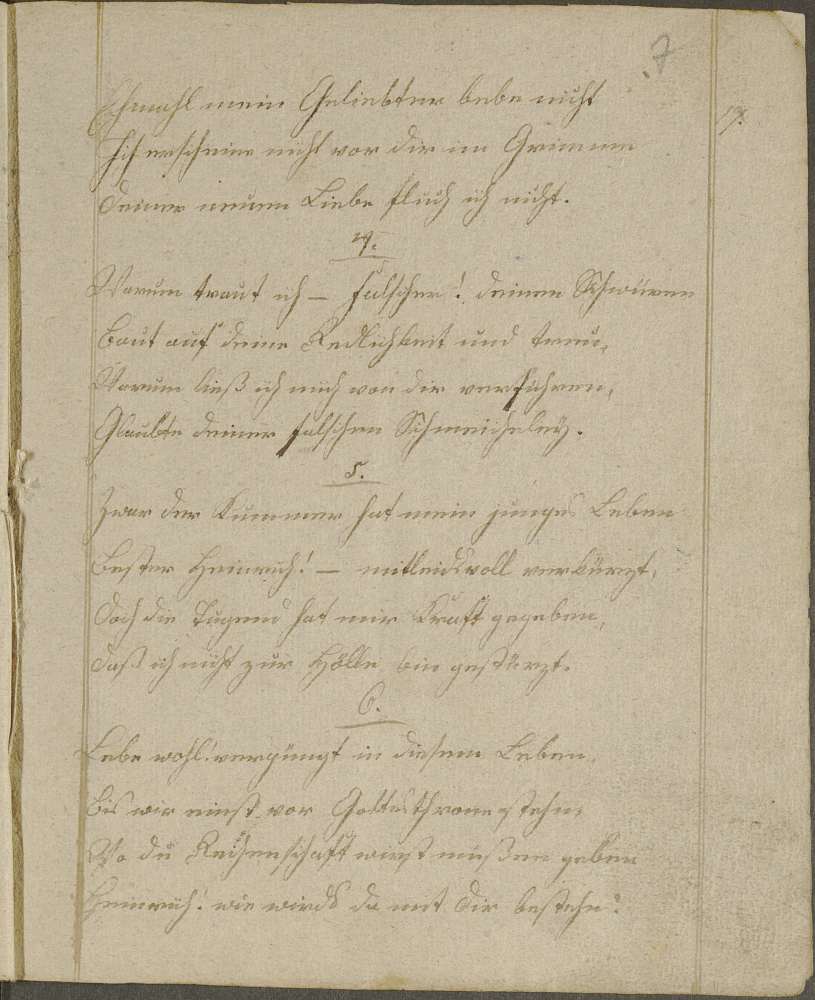 7
17.
Ehmahl mein Geliebter bebe nicht
Ich erscheine nicht vor dir im Grimme
Deiner neuen Liebe fluch ich nicht.
4.
Warum traut ich – falscher! deinen Schwüren
Baut auf deine Redlichkeit und treu,
Warum ließ ich mich von dir verführen,
Glaubte deiner falschen Schmeicheley.
5.
Zwar der Kummer hat mein junges Leben
Bester Heinrich! – mitleidsvoll verkürzt,
Doch die Tugend hat mir Kraft gegeben,
Daß ich nicht zur Hölle bin gestürzt.
6.
Lebe wohl! vergüngt in diesem Leben,
Bis wir einst vor Gottesthrone stehn,
Wo du Rechenschaft wirst müßen geben
Heinrich! wie wirds da mit dir bestehn?